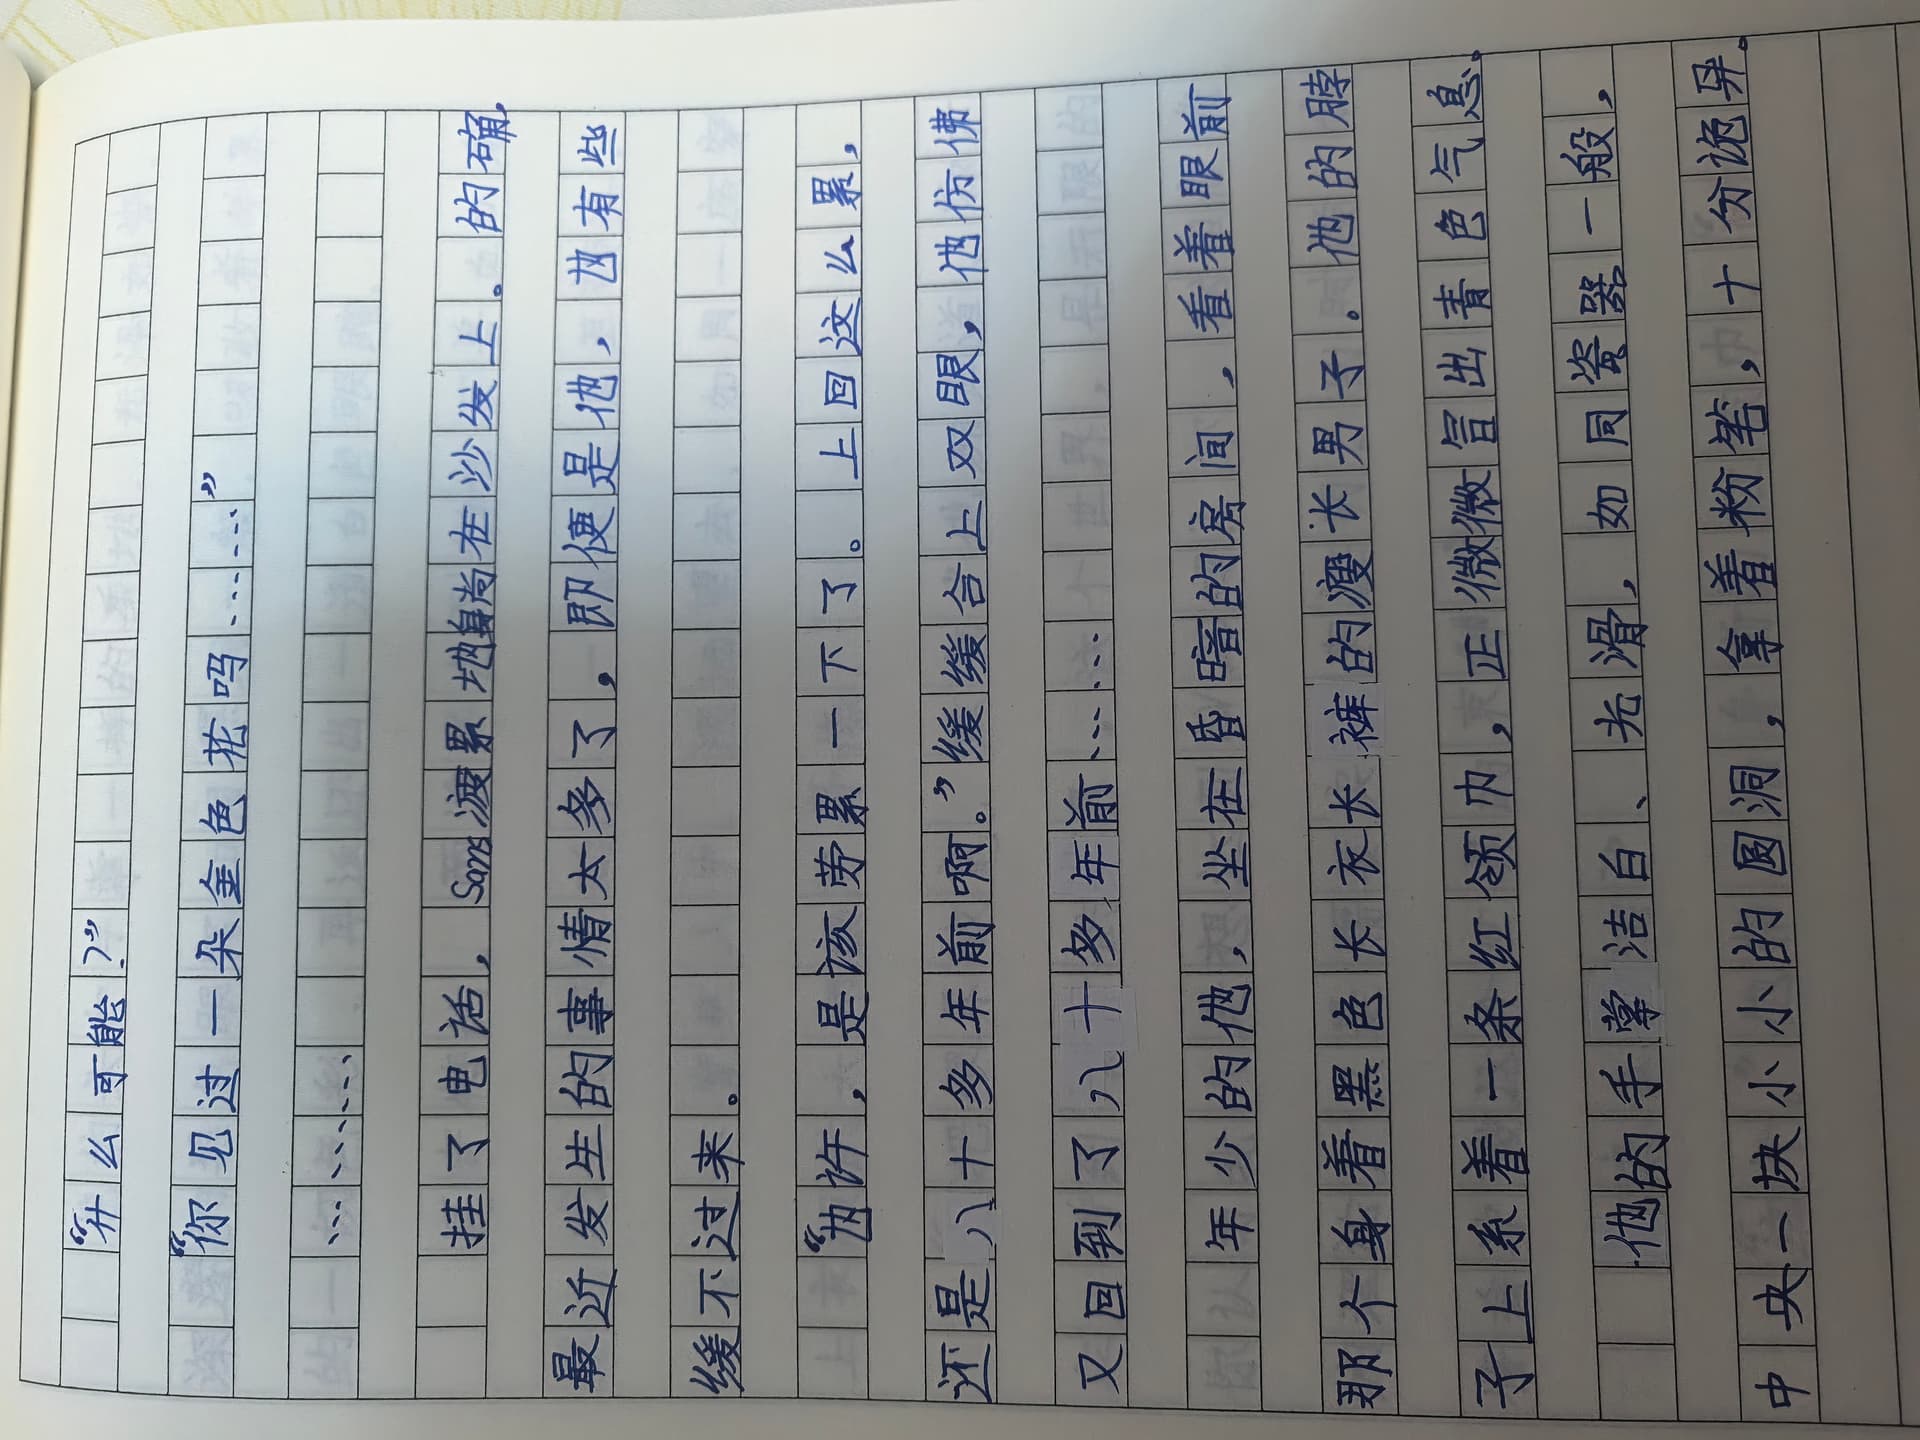 “什么可能？”
“你见过一朵金色花吗……”
…………
挂了电话，Sans疲累地躺在沙发上。的确，
最近发生的事情太多了，即便是他，也有些
缓不过来。
“也许，是该劳累一下了。上回这么累，
还是八十多年前啊。”缓缓合上双眼，他仿佛
又回到了八十多年前……
年少的他，坐在昏暗的房间，看着眼前
那个身着黑色长衣长裤的瘦长男子。他的脖
子上系着一条红领巾，正微微冒出青色气息。
他的手掌洁白、光滑，如同瓷器一般，
中央一块小小的圆洞，拿着粉笔，十分诡异。